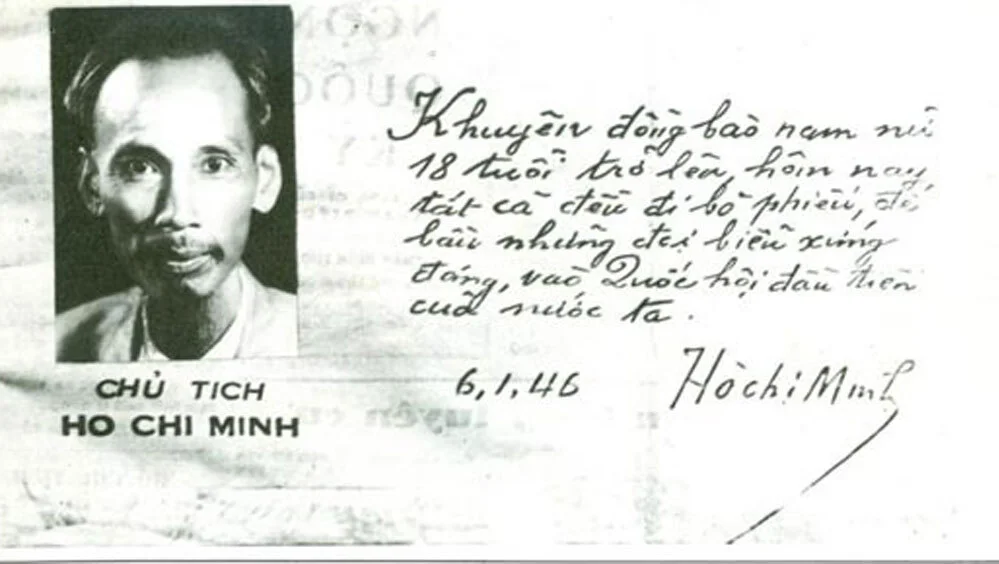 CHỦ TỊCH
HO CHI MINH
Khuyên đồng bào nam nữ
18 tuổi trở lên, hôm nay,
tất cả đều đi bỏ phiếu, để
bầu những đại biểu xứng
đáng, vào Quốc hội đầu tiên
của nước ta.
6.1.46
Hồ chí Minh
NGÔN
QUỐC